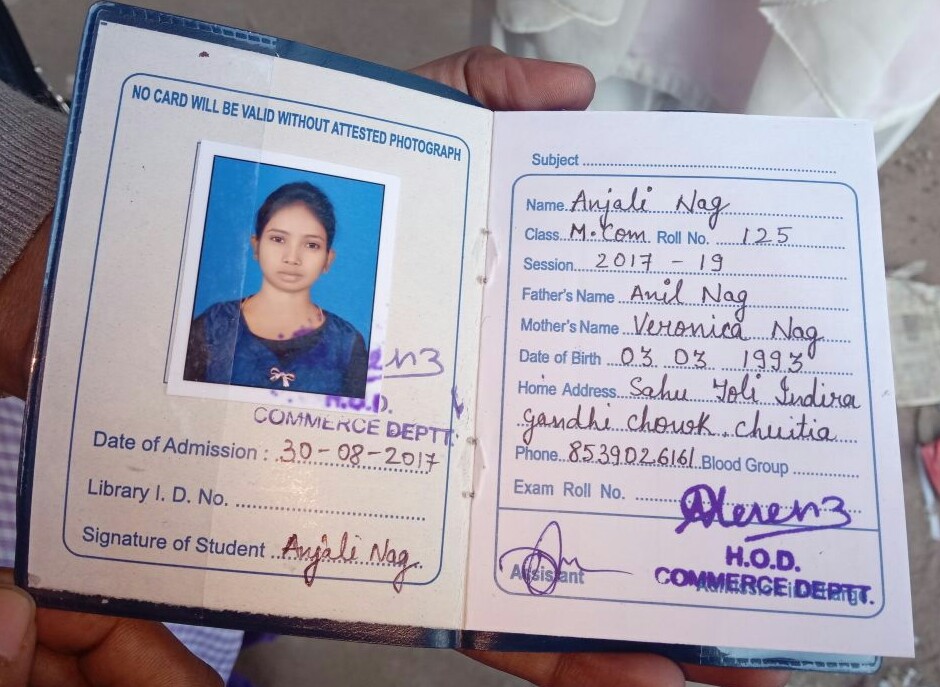 NO CARD WILL BE VALID WITHOUT ATTESTED PHOTOGRAPH
H.O.D.
COMMERCE DEPTT.
Date of Admission : 30-08-2017
Library I. D. No. ....................
Signature of Student Anjali Nag
Subject ....................
Name Anjali Nag
Class M.Com Roll No. 125
Session 2017 - 19
Father's Name Anil Nag
Mother's Name Veronica Nag
Date of Birth 03 03 1993
Home Address Sahu Toli Indira
gandhi chowk chutia
Phone 8539026161 Blood Group ..........
Exam Roll No. ..........
H.O.D.
Assistant
COMMERCE DEPTT.